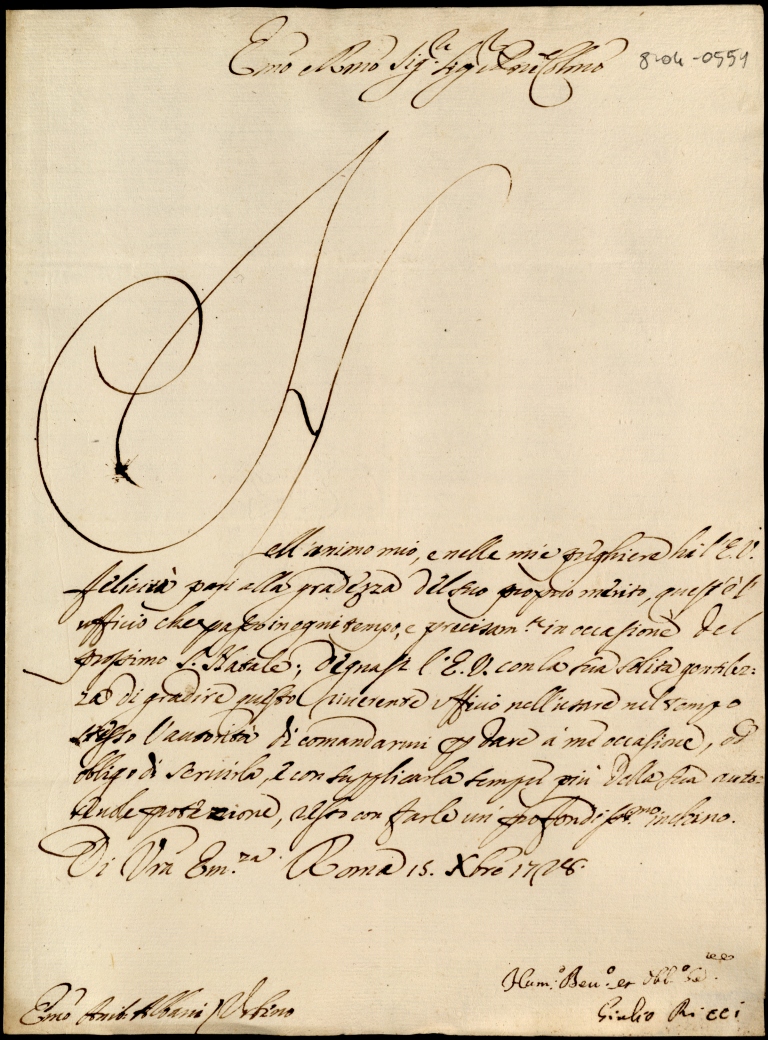 Emo e Rmo Sig.r Sig.r Pne Colmo
8-04-0551
Nell'animo mio, e nelle mie preghiere hà l'E.V.
felicità pari alla grādezza del suo proprio merito, quest'è l'
ufficio che passo in ogni tempo, e precisam.te in occasione del
prossimo S. Natale; degnasi l'E.V. con la sua solita gentilez=
za di gradire questo riverente ufficio nell'usare nel tempo
stesso l'autorità di comandarmi p dare à me occasione, od
obligo di servirla, e con supplicarla sempre più della sua auto=
protezzione, resto con farle un profondiss.mo inchino.
Di Vra Em.za Roma 15. Xbre 1728.
Hum.o Deu.o et Obl.o Se.re
Emo Anib. Albani / Urbino
Giulio Ricci